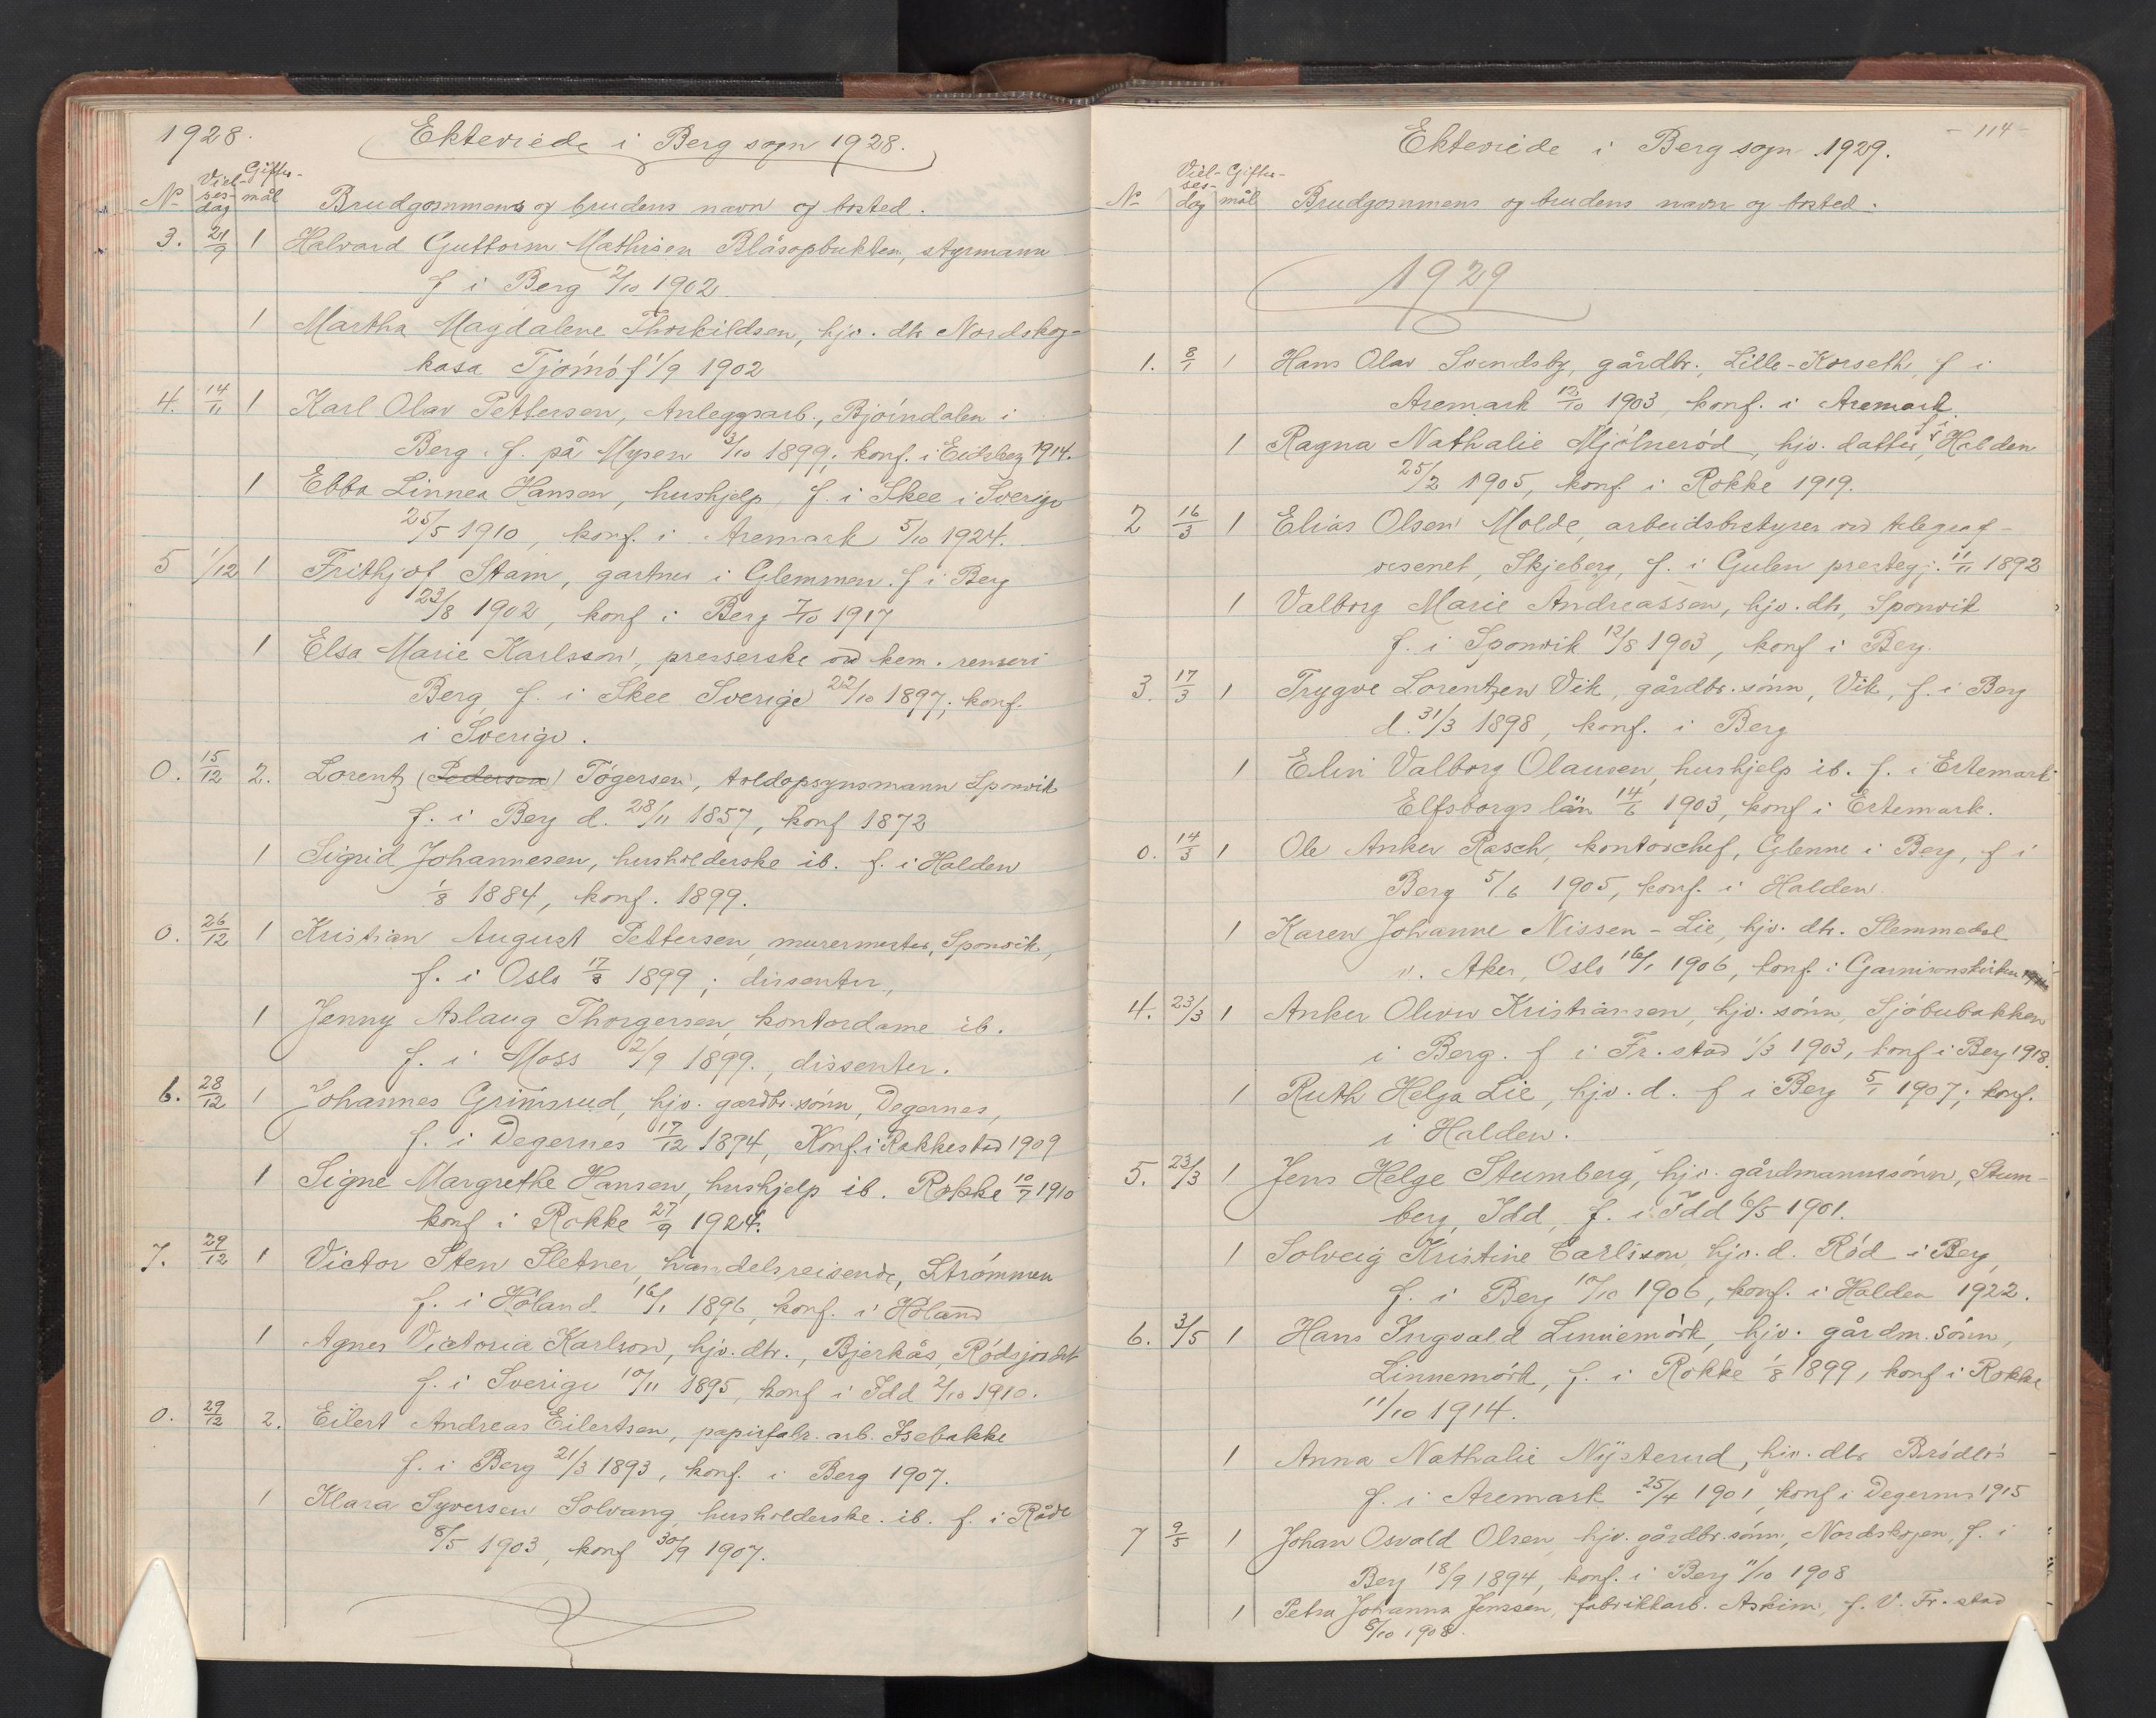 1928.
Ekteviede i Berg sogn 1928.
No Viel-ses-dag Gifter-mål Brudgommens og brudens navn og bosted.
3. 21/9 1 Halvard Guttorm Mathisen Blåsopbukten, styrmann
f i Berg 2/10 1902
1 Martha Magdalene Thorkildsen, hjv. dtr Nordskog-
kasa Tjömö f 1/9 1902
4. 14/11 1 Karl Olav Pettersen, Anleggsarb., Bjöindalen i
Berg. f. på Mysen 3/10 1899; konf. i Eidsberg 1914.
1 Ebba Linnea Hansen, hushjelp, f. i Skee i Sverige
25/5 1910, konf. i Aremark 5/10 1924.
5 1/12 1 Frithjof Stam, gartner i Glemmen. f i Berg
23/8 1902, konf i Berg 7/10 1917
1 Elsa Marie Karlsson, presserske ved kem. renseri
Berg f. i Skee Sverige 22/10 1897; konf.
i Sverige.
0. 15/12 2. Lorentz (Pedersen) Tögersen, toldopsynsmann Sponvik
f. i Berg d. 28/11 1857, konf 1872
1 Sigrid Johannesen, husholderske ib. f. i Halden
1/8 1884, konf. 1899.
0. 26/12 1 Kristian August Pettersen, murermester, Sponvik,
f. i Oslo 17/8 1899; dissenter,
1 Jenny Aslaug Thorgersen, kontordame ib.
f. i Moss 2/9 1899., dissenter.
6. 28/12 1 Johannes Grimsrud, hjv. gardbr. sönn, Degernes,
f. i Degernes 17/12 1894, Konf. i Rakkestad 1909
1 Signe Margrethe Hansen, hushjelp ib. Rokke 10/7 1910
konf i Rokke 27/9 1924.
7. 29/12 1 Victor Sten Sletner, handelsreisende, Strömmen
f. i Höland 16/1 1896, konf. i Höland
1 Agnes Victoria Karlson, hjv. dtr., Bjerkås, Rödsjordet
f. i Sverige 10/11 1895, konf i Idd 2/10 1910.
0. 29/12 2. Eilert Andreas Eilertsen, papirfabr. arb. Isebakke
f. i Berg 21/3 1893, konf. i Berg 1907.
1 Klara Syversen Solvang, husholderske. ib. f. i Råde
8/5 1903, konf 30/9 1907.
- 114 -
Ekteviede i Berg sogn 1929.
No Viel-ses-dag Gifter-mål Brudgommens og brudens navn og bosted.
1929
1. 8/1 1 Hans Olav Svendsby, gårdbr., Lille-Korseth, f i
Aremark 13/10 1903, konf. i Aremark.
1 Ragna Nathalie Mjölnerød, hjv. datter, f i Halden
25/2 1905, konf. i Rokke 1919.
2 16/3 1 Elias Olsen Molde, arbeidsbestyrer ved telegraf-
vesenet, Skjeberg, f. i Gulen prestegj. 11/11 1892
1 Valborg Marie Andreassen, hjv. dtr, Sponvik
f. i Sponvik 12/8 1903, konf i Berg.
3. 17/3 1 Trygve Lorentzen Vik, gårdbr. sönn, Vik, f. i Berg
d. 31/3 1898, konf. i Berg
1 Elin Valborg Olausen, hushjelp ib. f. i Ertemark
Elfsborgs län 14/6 1903, konf i Ertemark.
0. 14/3 1 Ole Anker Rasch, kontorchef, Glenne i Berg, f i
Berg 5/6 1905, konf. i Halden.
1 Karen Johanne Nissen-Lie, hjv. dtr. Slemmedal
v. Aker, Oslo 16/1 1906, konf. i Garnisonskirken
4. 23/3 1 Anker Oliver Kristiansen, hjv. sönn, Sjöbubakken
i Berg. f i Fr.stad 1/3 1903, konf i Berg 1918.
1 Ruth Helga Lie, hjv. d. f i Berg 5/1 1907; konf.
i Halden.
5. 23/3 1 Jens Helge Stumberg, hjv. gårdmannssönn, Stum-
berg, Idd, f. i Idd 6/5 1901.
1 Solveig Kristine Carlsson, hjv. d. Röd i Berg,
f. i Berg 10/10 1906, konf. i Halden 1922.
6. 3/5 1 Hans Ingvald Linnemörk, hjv. gårdm. sönn,
Linnemörk, f. i Rokke 1/8 1899, konf i Rokke
11/10 1914.
1 Anna Nathalie Nysterud, hjv. dtr Brödlös
f. i Aremark 25/4 1901 konf i Degernes 1915
7 9/5 1 Johan Osvald Olsen, hjv. gårdbr. sönn, Nordskogen, f. i
Berg 18/9 1894, konf. i Berg 11/10 1908
1 Petra Johanna Jenssen, fabrikkarb. Askim, f. V. Fr.stad
8/10 1908.